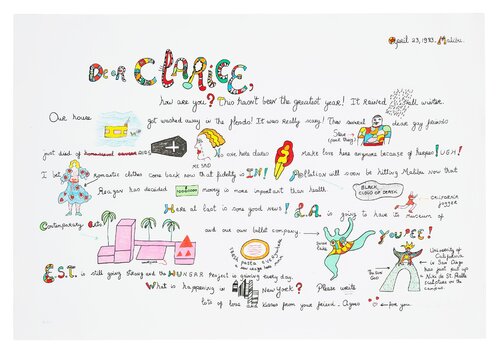 April 23, 1983. Malibu.
Dear CLARICE,
how are you? This hasn't been the greatest year! It rained all winter.
Our house got washed away in the floods! It was really scary! Then several dear gay friends
just died of AIDS ME SAD No one here dares Make love here anymore because of herpes! UGH!
I bet romantic clothes come back now that fidelity is IN! Pollution will soon be hitting Malibu now that
Reagan has decided money is more important than health BLACK CLOUD OF DEATH CALIFORNIA JOGGER
Here at last is some good news! L.A. is going to have its Museum of
Contemporary Arts! and our own ballet company. YOUPEE!
FRESH PASTA EVERYWHERE
Swan Lake
University of California in San Diego has just put up Niki de St. Phalle sculpture on the campus.
The Sun God
E.S.T. is still going strong and the HUNGER Project is gaining every day.
What is happening in New York? Please write
lots of love kisses from your friend. Agnes for you